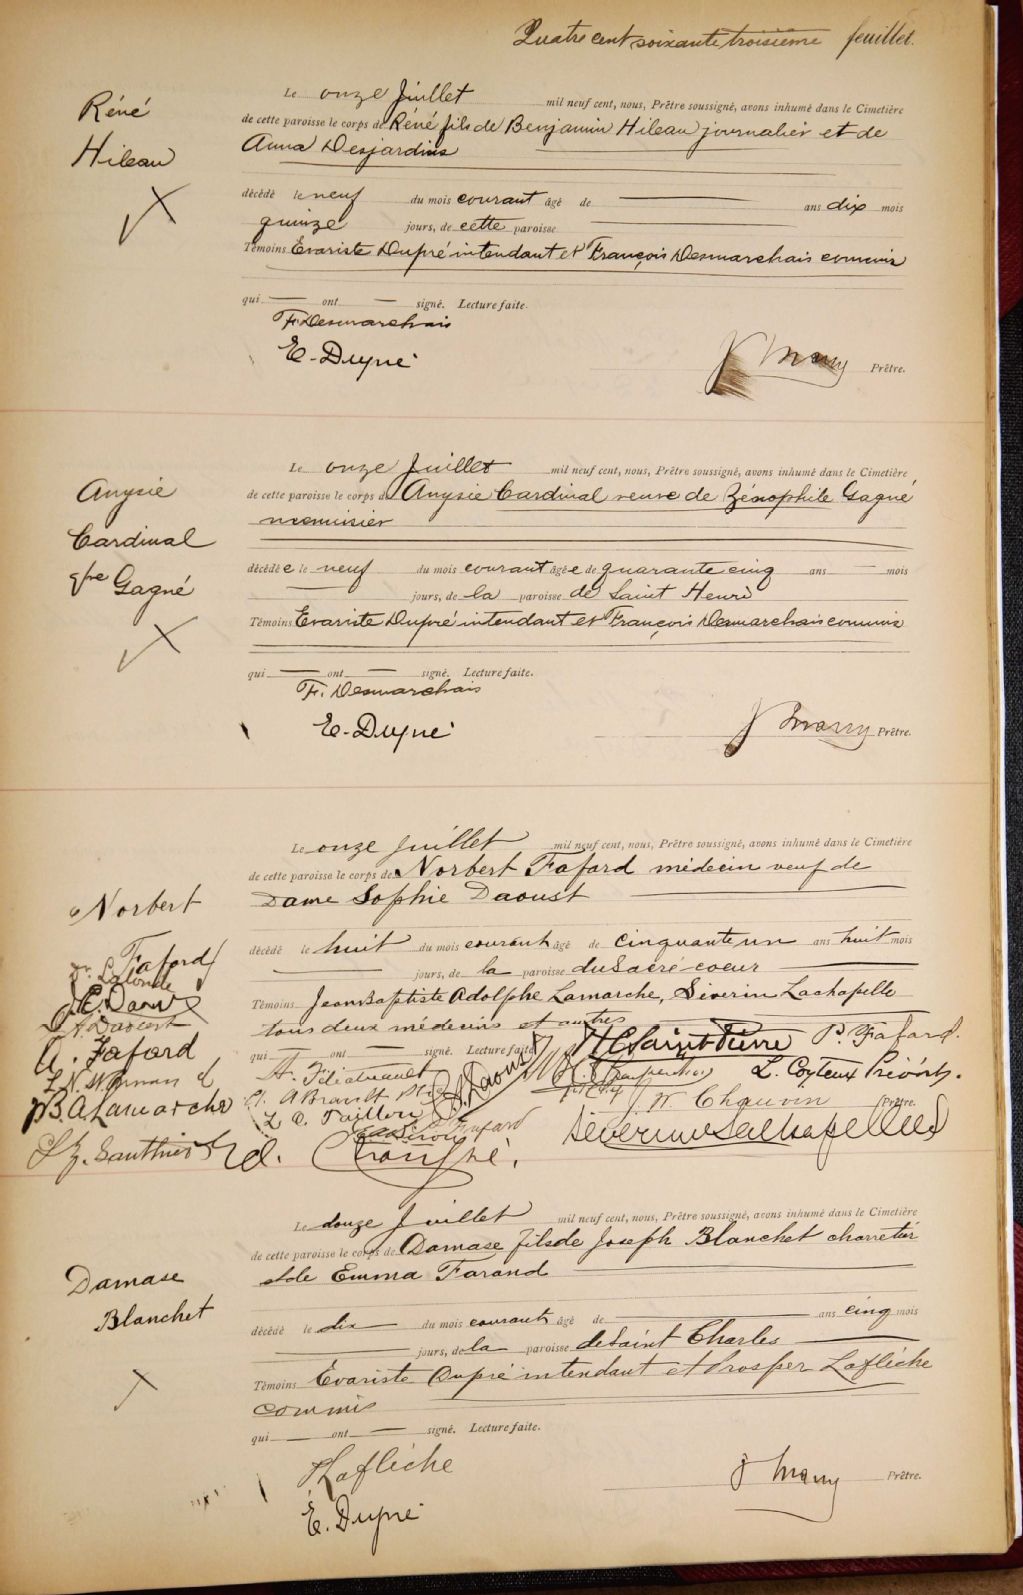 Quatre cent soixante troisième feuillet.
Réné
Hileau
Le onze Juillet mil neuf cent, nous, Prêtre soussigné, avons inhumé dans le Cimetière
de cette paroisse le corps de Réné fils de Benjamin Hileau journalier et de
Anna Desjardins
décédé le neuf du mois courant âgé de ans dix mois
quinze jours, de cette paroisse
Témoins Evariste Dupré intendant et François Desmarchais commis
qui ont signé. Lecture faite.
F. Desmarchais
E. Dupré
Prêtre.
Anysie
Cardinal
Gagné
Le onze Juillet mil neuf cent, nous, Prêtre soussigné, avons inhumé dans le Cimetière
de cette paroisse le corps de Anysie Cardinal veuve de Zénophile Gagné
menuisier
décédée le neuf du mois courant âgée de quarante cinq ans mois
jours, de la paroisse de Saint Henri
Témoins Evariste Dupré intendant et François Desmarchais commis
qui ont signé. Lecture faite.
F. Desmarchais
E. Dupré
Prêtre.
Norbert
Fafard
Le onze juillet mil neuf cent, nous, Prêtre soussigné, avons inhumé dans le Cimetière
de cette paroisse le corps de Norbert Fafard médecin veuf de
Dame Sophie Daoust
décédé le huit du mois courant âgé de cinquante un ans huit mois
jours, de la paroisse du Sacré-coeur
Témoins Jean Baptiste Adolphe Lamarche, Séverin Lachapelle
tous deux médecins et autres
qui ont signé. Lecture faite
Lalonde
A. Daoust
A. Fafard
J. B. A. Lamarche
Gauthier
P. Fafard.
L. Coyteux Prévost.
Chauvin Prêtre.
Séverin Lachapelle
Damase
Blanchet
Le douze Juillet mil neuf cent, nous, Prêtre soussigné, avons inhumé dans le Cimetière
de cette paroisse le corps de Damase fils de Joseph Blanchet charretier
et de Emma Farand
décédé le dix du mois courant âgé de ans cinq mois
jours, de la paroisse de Saint Charles
Témoins Evariste Dupré intendant et Prosper Laflèche
commis
qui ont signé. Lecture faite.
P. Laflèche
E. Dupré
Prêtre.